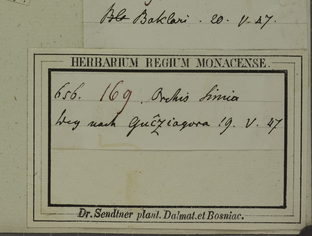 Baklari . 20. V. 47.
HERBARIUM REGIUM MONACENSE.
656. 169. Orchis Simia
Weg nach Gučziagora 19. V. 47
Dr. Sendtner plant. Dalmat. et Bosniac.